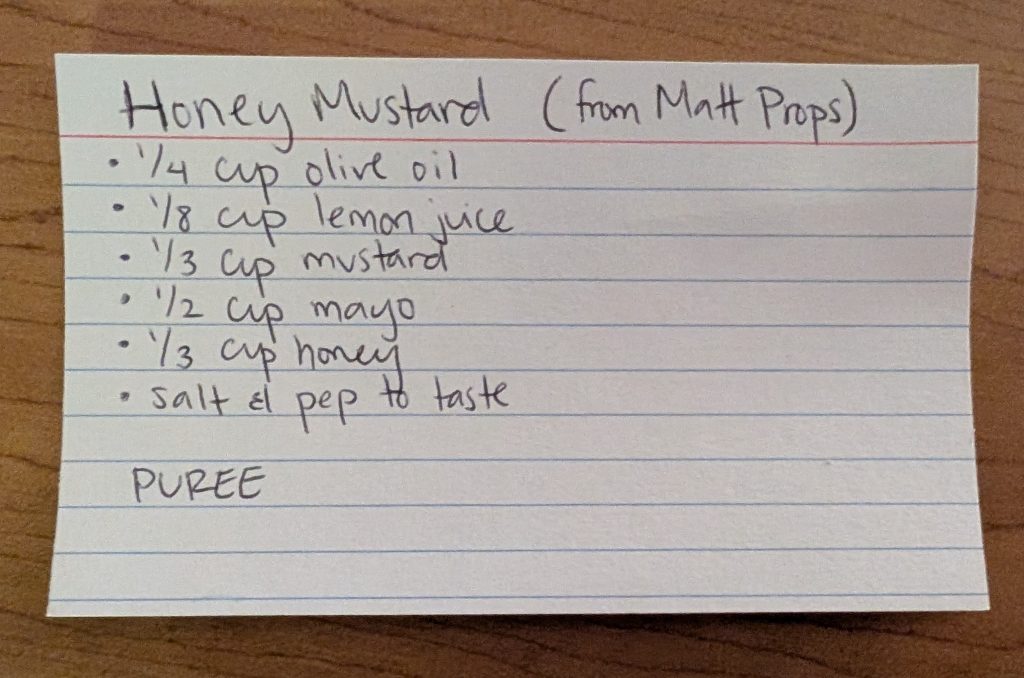 Honey Mustard (from Matt Props)
• 1/4 cup olive oil
• 1/8 cup lemon juice
• 1/3 cup mustard
• 1/2 cup mayo
• 1/3 cup honey
• salt & pep to taste
PUREE